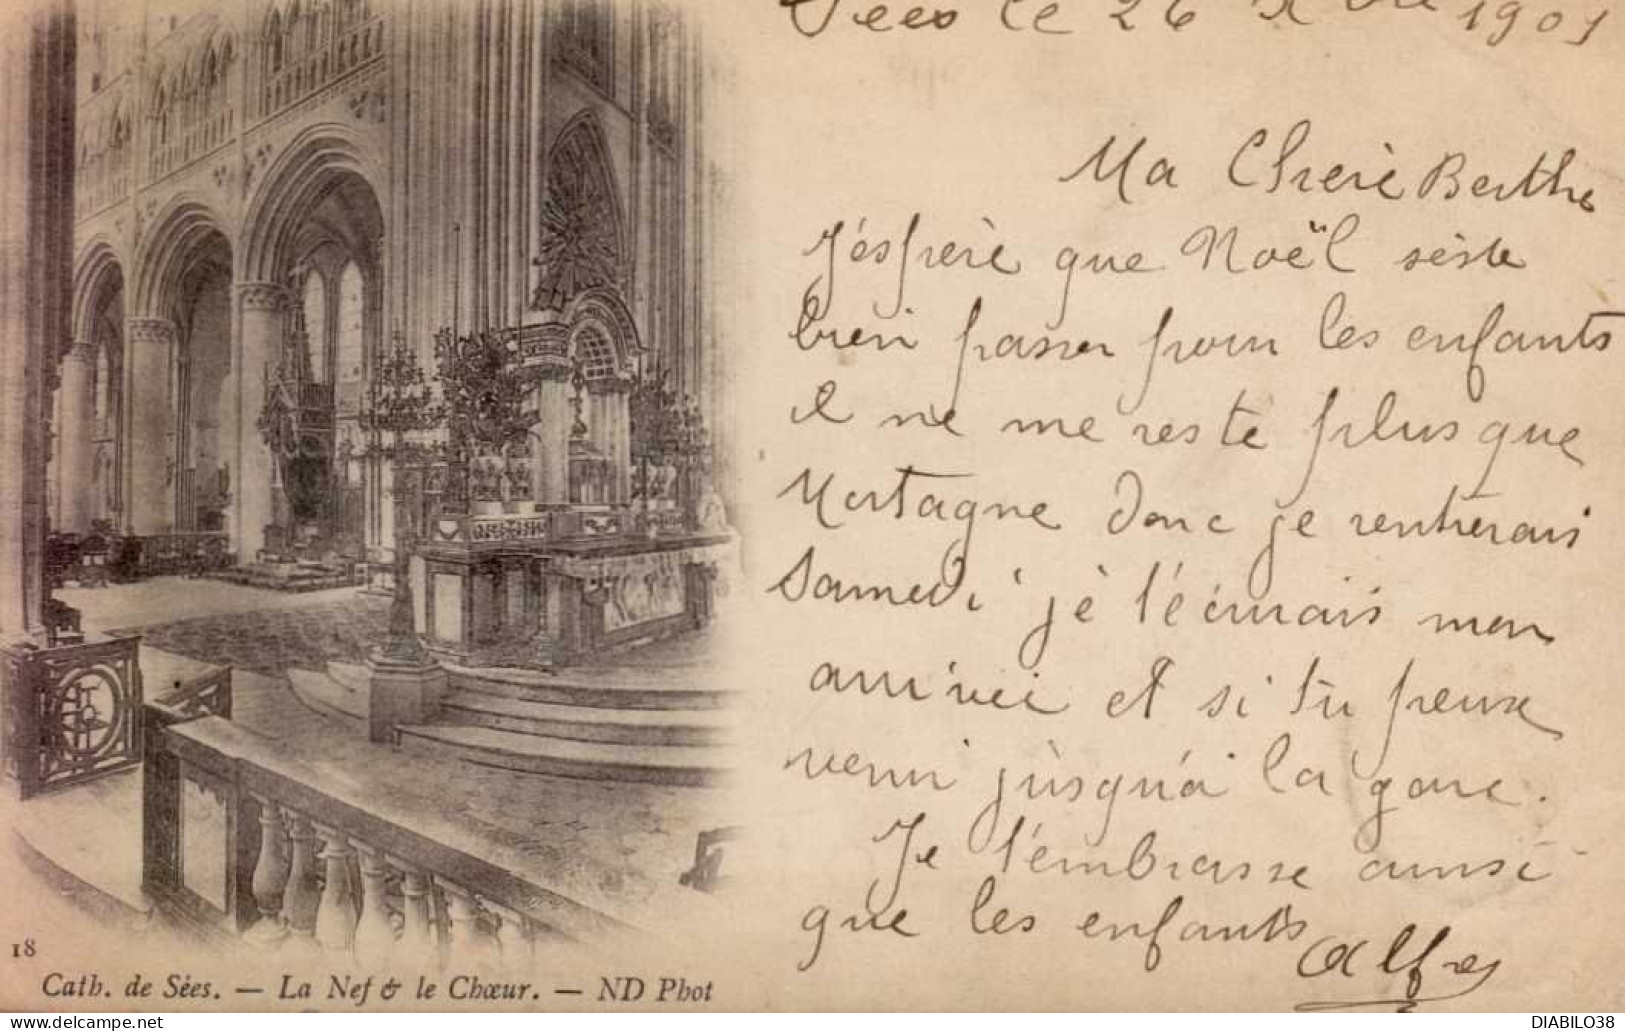 Sées le 26 Xbre 1901
Ma Cherè Berthe
J'éspèrè que Noël sèste
bien passer pour les enfants
il ne me reste plus que
Mortagne donc je rentrerais
Samedi jè t'écrirais mon
arrivei et si tu peux
venir jùsqu'à la gare.
Je t'embrasse ainsi
que les enfants
Alfred
18
Cath. de Sées. — La Nef & le Chœur. — ND Phot
www.delcampe.net
DIABILO38